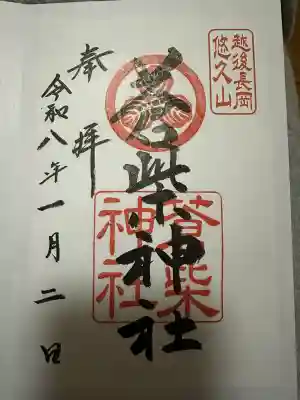 越後長岡
悠久山
奉拝
蒼柴神社
蒼柴
神社
令和八年一月二日